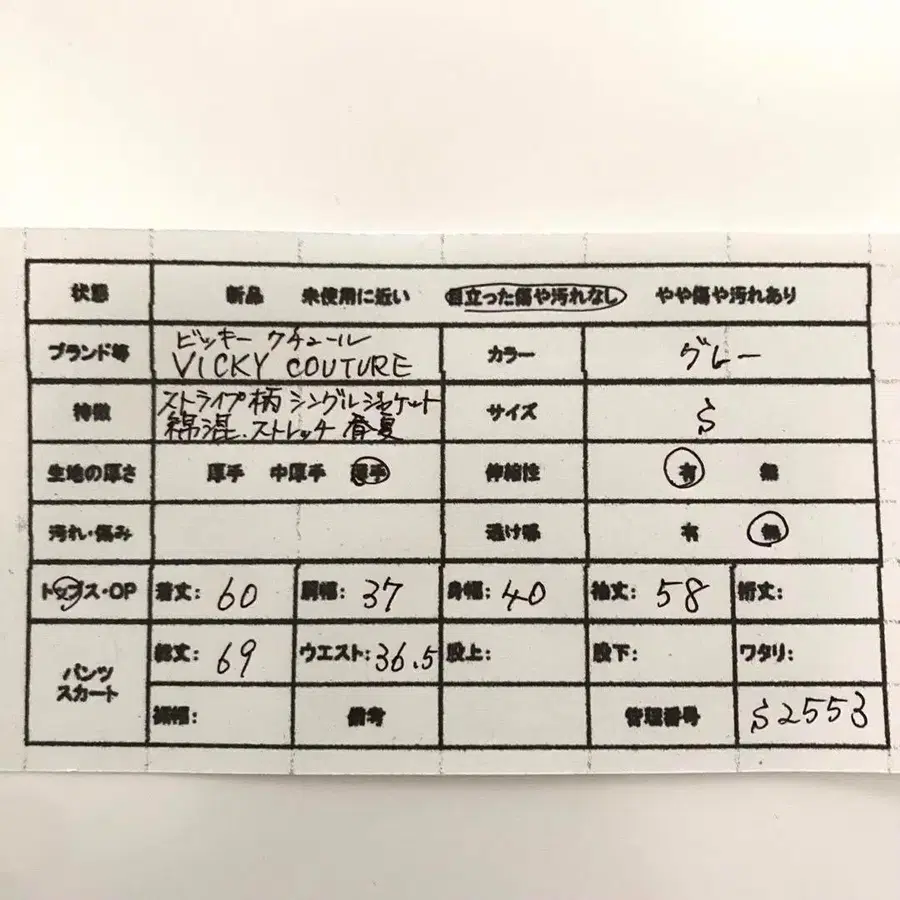 状態 新品 未使用に近い 目立った傷や汚れなし やや傷や汚れあり
ブランド等 ビッキー クチュール
VICKY COUTURE カラー グレー
特徴 ストライプ柄 シングルジャケット
綿混.ストレッチ 春夏 サイズ S
生地の厚さ 厚手 中厚手 薄手 伸縮性 有 無
汚れ・傷み 透け感 有 無
トップス・OP 着丈: 60 肩幅: 37 身幅: 40 袖丈: 58 裄丈:
パンツ
スカート 総丈: 69 ウエスト: 36.5 股上: 股下: ワタリ:
裾幅: 備考 管理番号 S2553